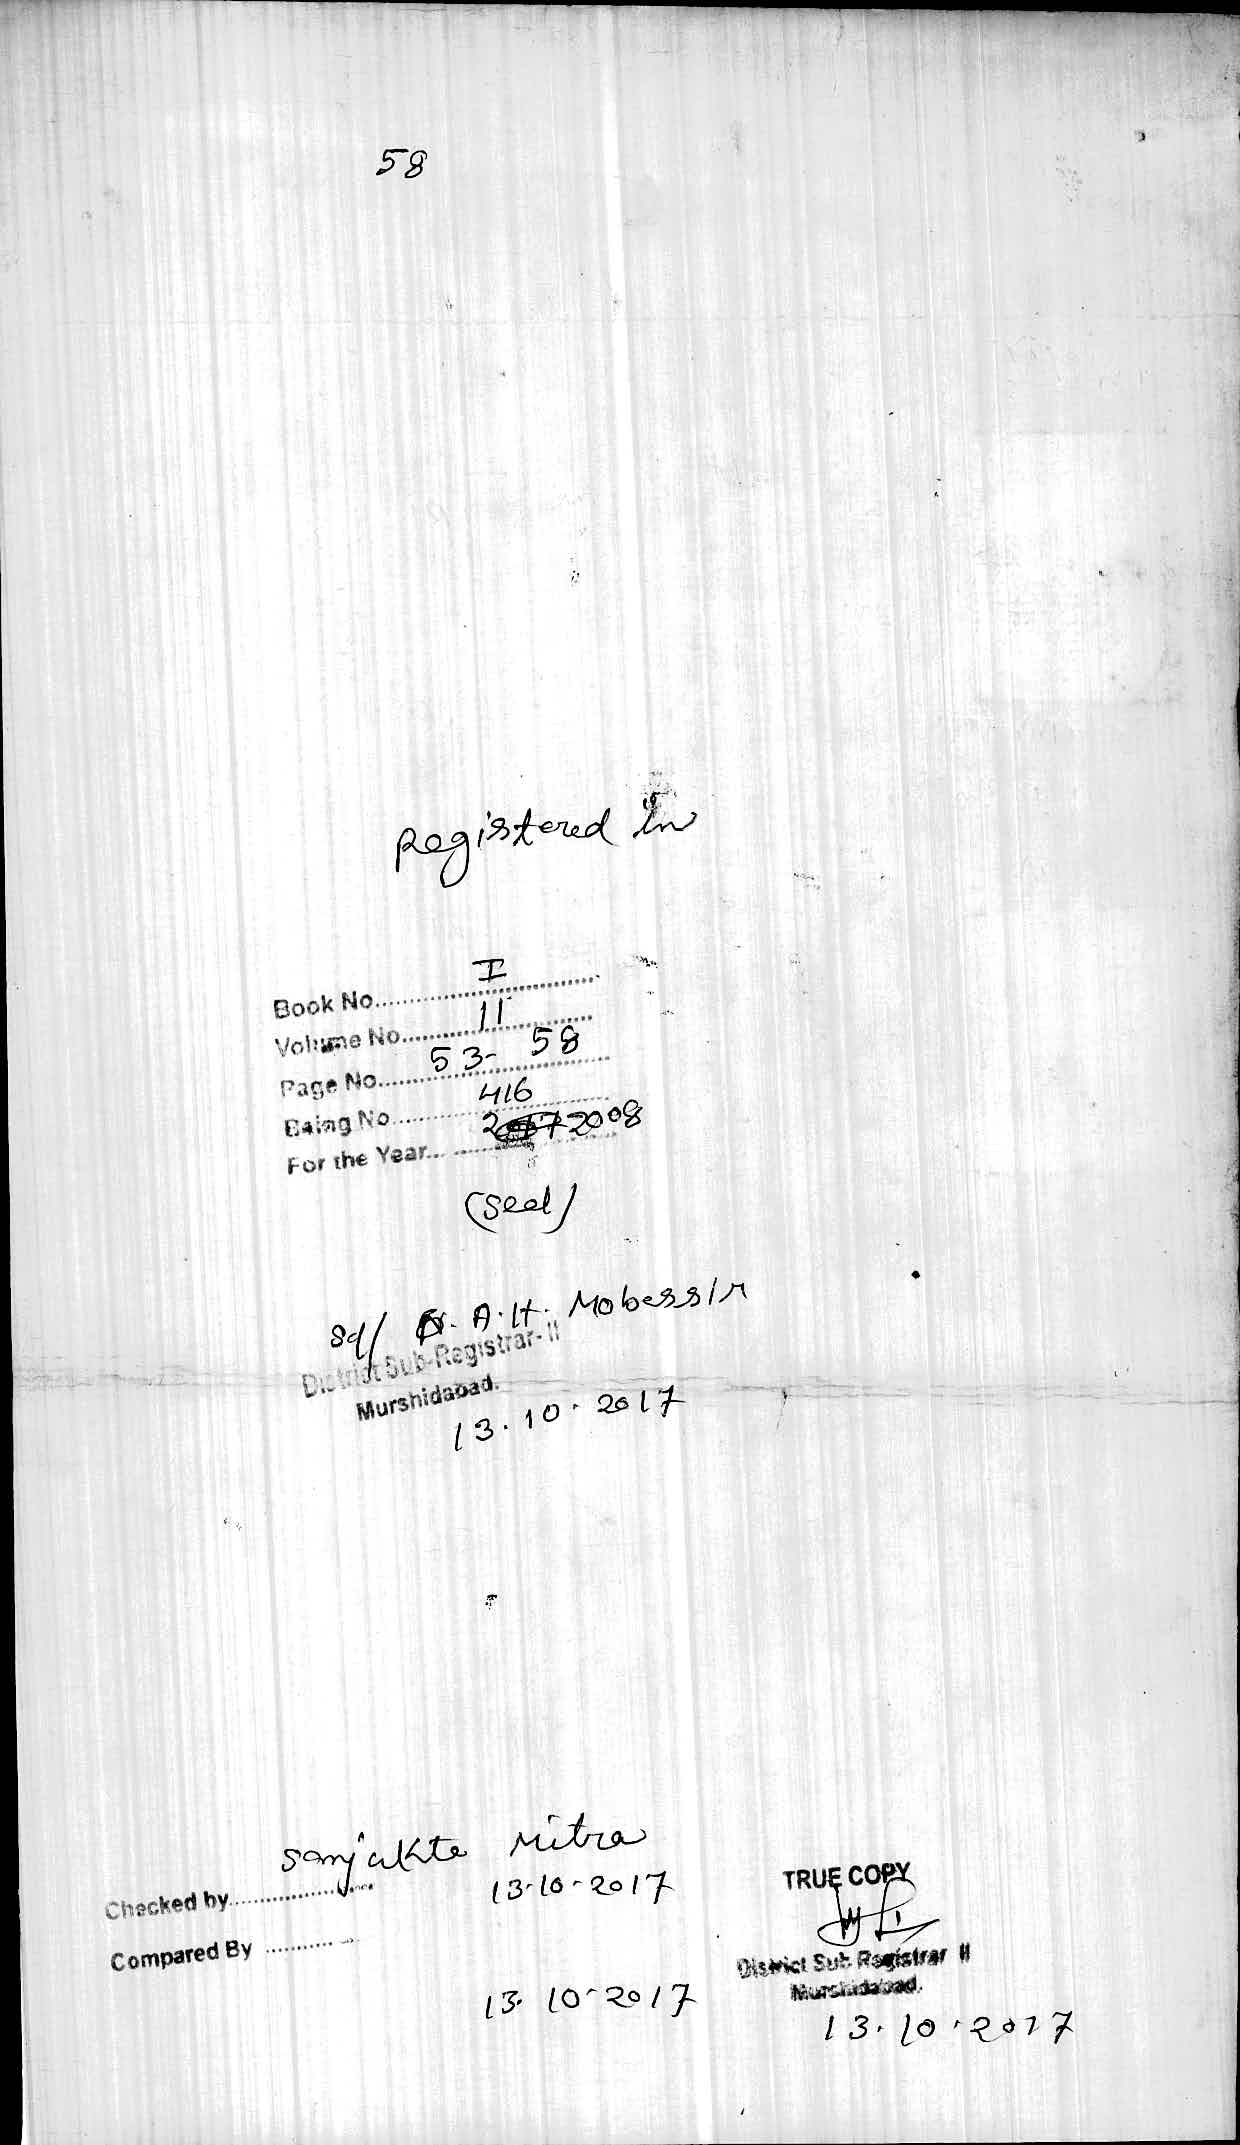 58
Registered in
Book No.......... I
Volume No.......... 11
Page No.......... 53- 58
Being No.......... 416
For the Year.......... 2008
(Seal)
Sd/ A. H. Mobassir
District Sub-Registrar- II
Murshidabad.
13.10.2017
Sanjukta Mitra
Checked by.......... 13-10-2017
Compared By ..........
13.10-2017
TRUE COPY
District Sub Registrar II
Murshidabad.
13.10.2017